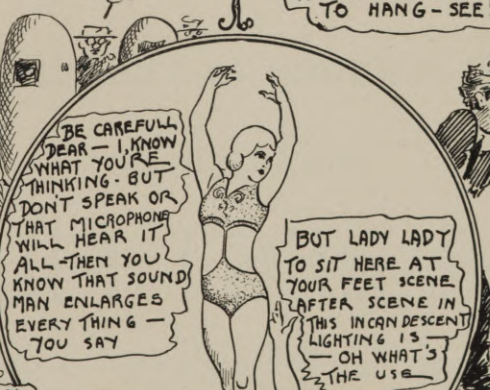 TO HANG - SEE
BE CAREFULL
DEAR - I, KNOW
WHAT YOU'RE
THINKING - BUT
DON'T SPEAK OR
THAT MICROPHONE
WILL HEAR IT
ALL - THEN YOU
KNOW THAT SOUND
MAN ENLARGES
EVERY THING -
YOU SAY
BUT LADY LADY
TO SIT HERE AT
YOUR FEET SCENE
AFTER SCENE IN
THIS INCANDESCENT
LIGHTING IS -
- OH WHAT'S
THE USE